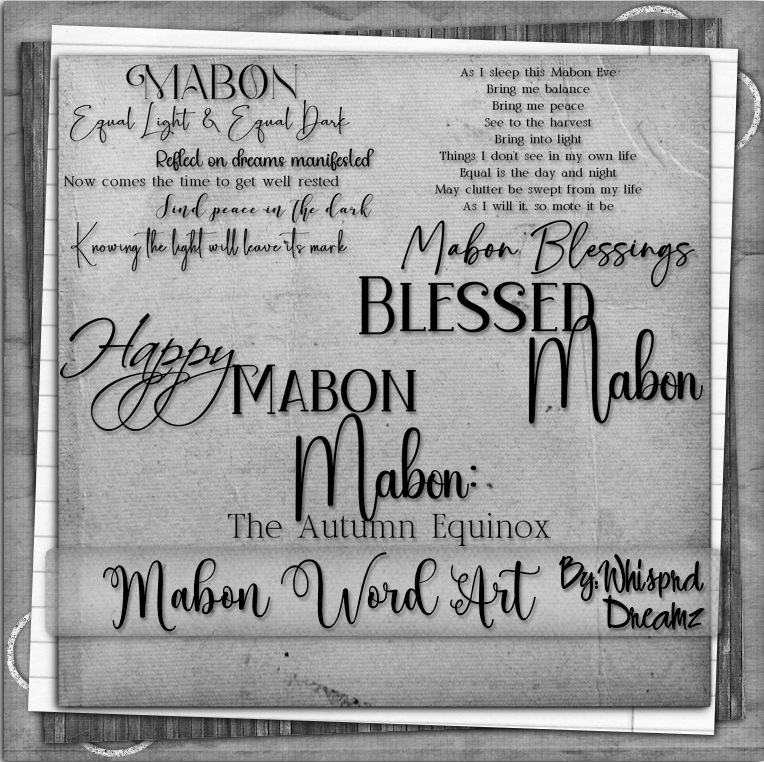 MABON
Equal Light & Equal Dark
Reflect on dreams manifested
Now comes the time to get well rested
Find peace in the dark
Knowing the light will leave its mark
As I sleep this Mabon Eve
Bring me balance
Bring me peace
See to the harvest
Bring into light
Things I don't see in my own life
Equal is the day and night
May clutter be swept from my life
As I will it, so mote it be
Mabon Blessings
BLESSED
Mabon
Happy
MABON
Mabon:
The Autumn Equinox
Mabon Word Art
By:Whisprd
Dreamz